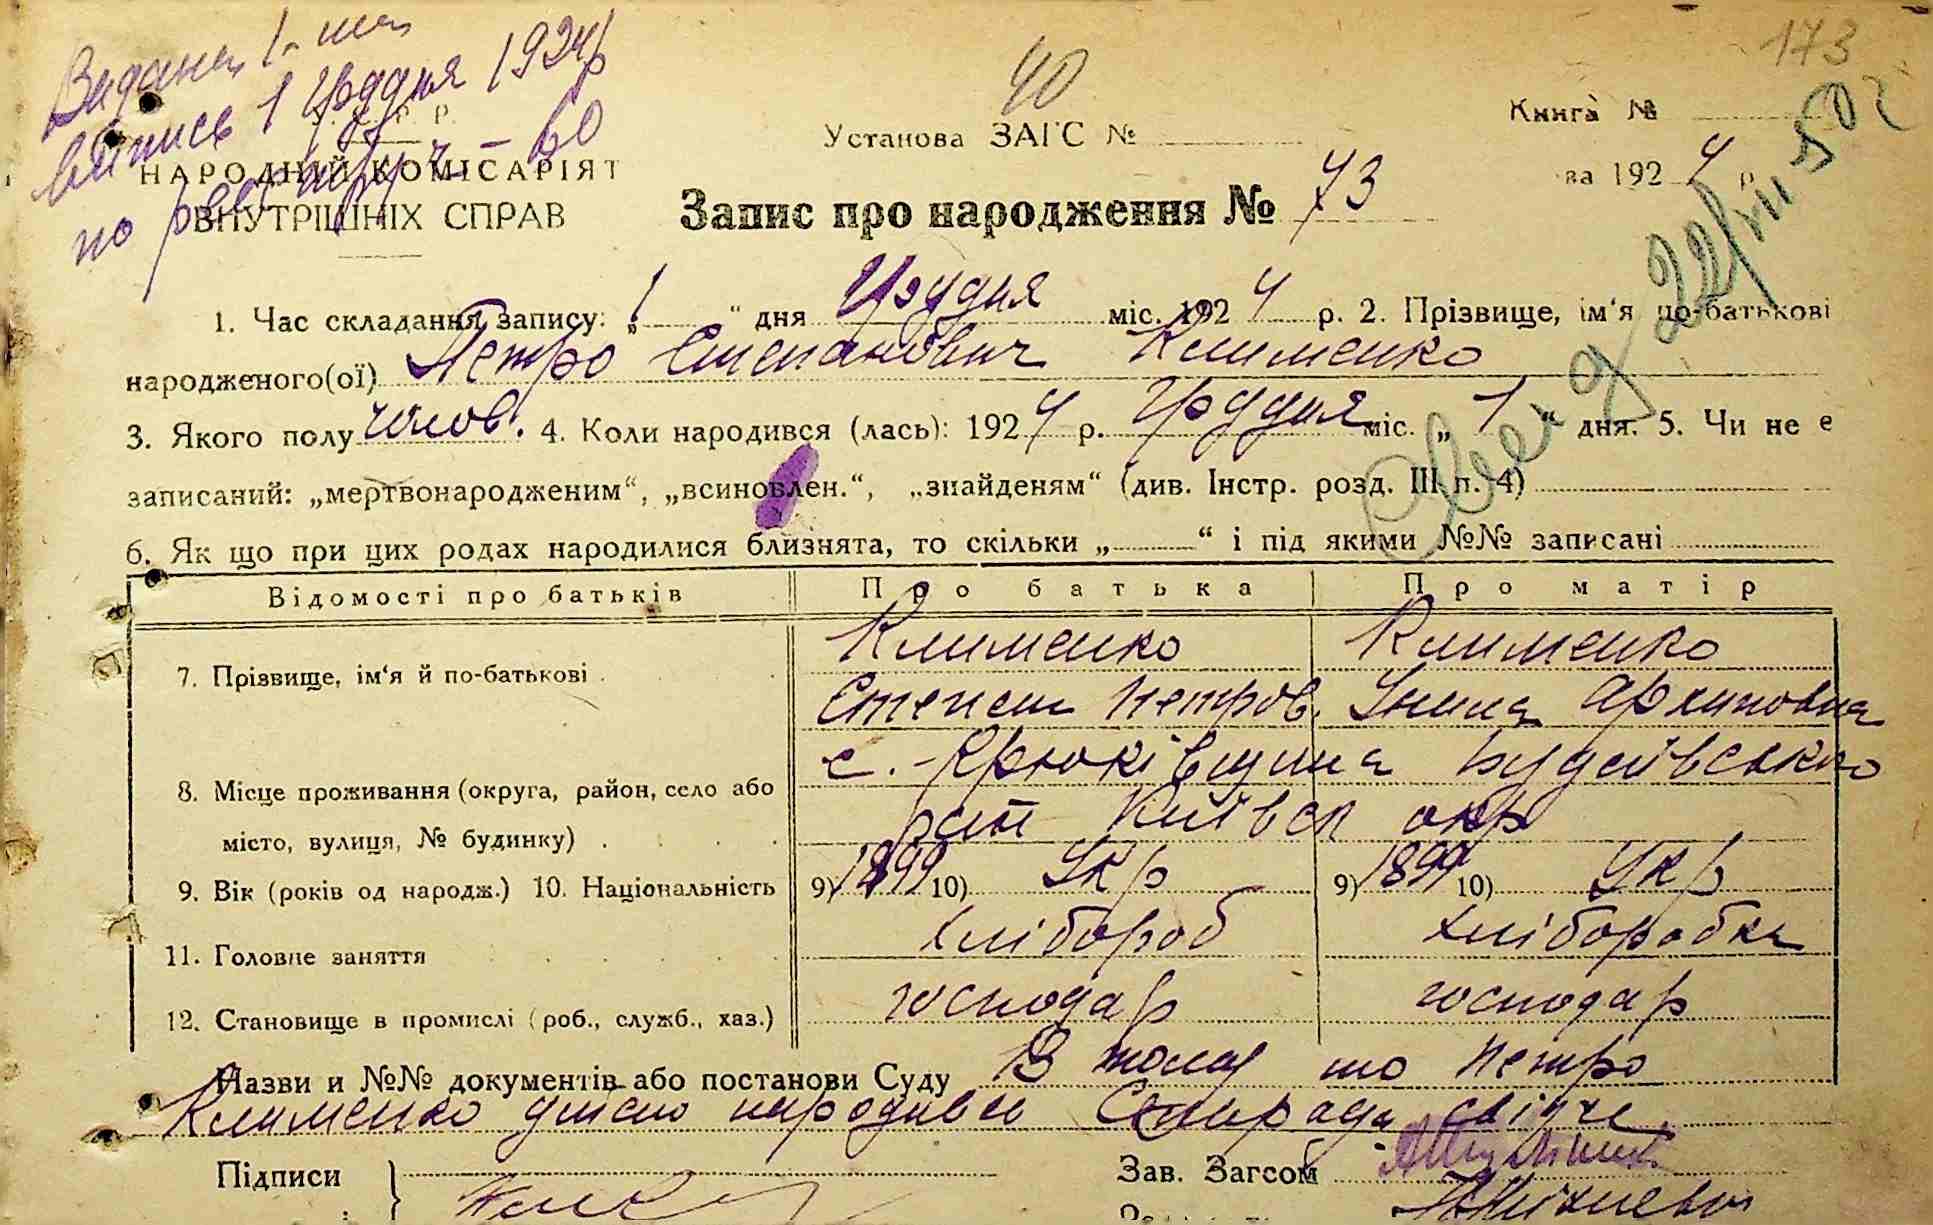 173
Видана 1-ша
випись 1 Грудня 1924 р
по реєстру ч – 60
У. С. Р. Р.
НАРОДНИЙ КОМІСАРІЯТ
ВНУТРІШНІХ СПРАВ
40
Установа ЗАГС №
Книга №
за 1924 р
Запис про народження № 73
22/VII 50
1. Час складання запису: „1“ дня Грудня міс. 1924 р. 2. Прізвище, ім'я по-батькові
народженого(ої) Петро Степанович Клименко
3. Якого полу чолов. 4. Коли народився (лась): 1924 р. Грудня міс. „1“ дня. 5. Чи не є
записаний: „мертвонародженим“, „всиновлен.“, „знайденям“ (див. Інстр. розд. III п. 4)
6. Як що при цих родах народилися близнята, то скільки „ “ і під якими №№ записані
Відомості про батьків Про батька Про матір
7. Прізвище, ім'я й по-батькові Клименко Клименко
Степан Петров. Униля Архиповна
8. Місце проживання (округа, район, село або с. Крюківщина Будаївського
місто, вулиця, № будинку) рай Київск окр
9. Вік (років од народж.) 10. Національність 9) 1899 10) Укр 9) 1899 10) Укр
11. Головне заняття хлібороб хліборобка
12. Становище в промислі (роб., служб., хаз.) господар господар
Назви и №№ документів або постанови Суду В тому що Петро
Клименко дійсно народився Сільрада свідче
Підписи
Зав. Загсом